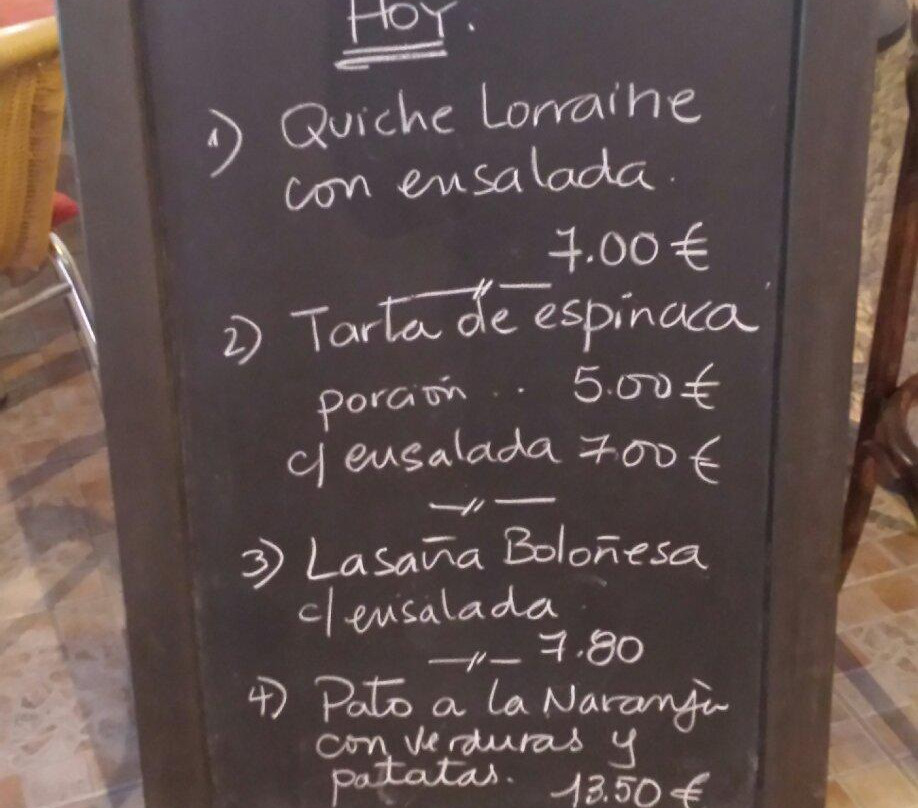 HOY.
1) Quiche Lorraine
con ensalada.
7.00 €
2) Tarta de espinaca
porción .. 5.00 €
c/ ensalada 7.00 €
3) Lasaña Boloñesa
c/ ensalada
7.80
4) Pato a la Naranja
con verduras y
patatas. 13.50 €